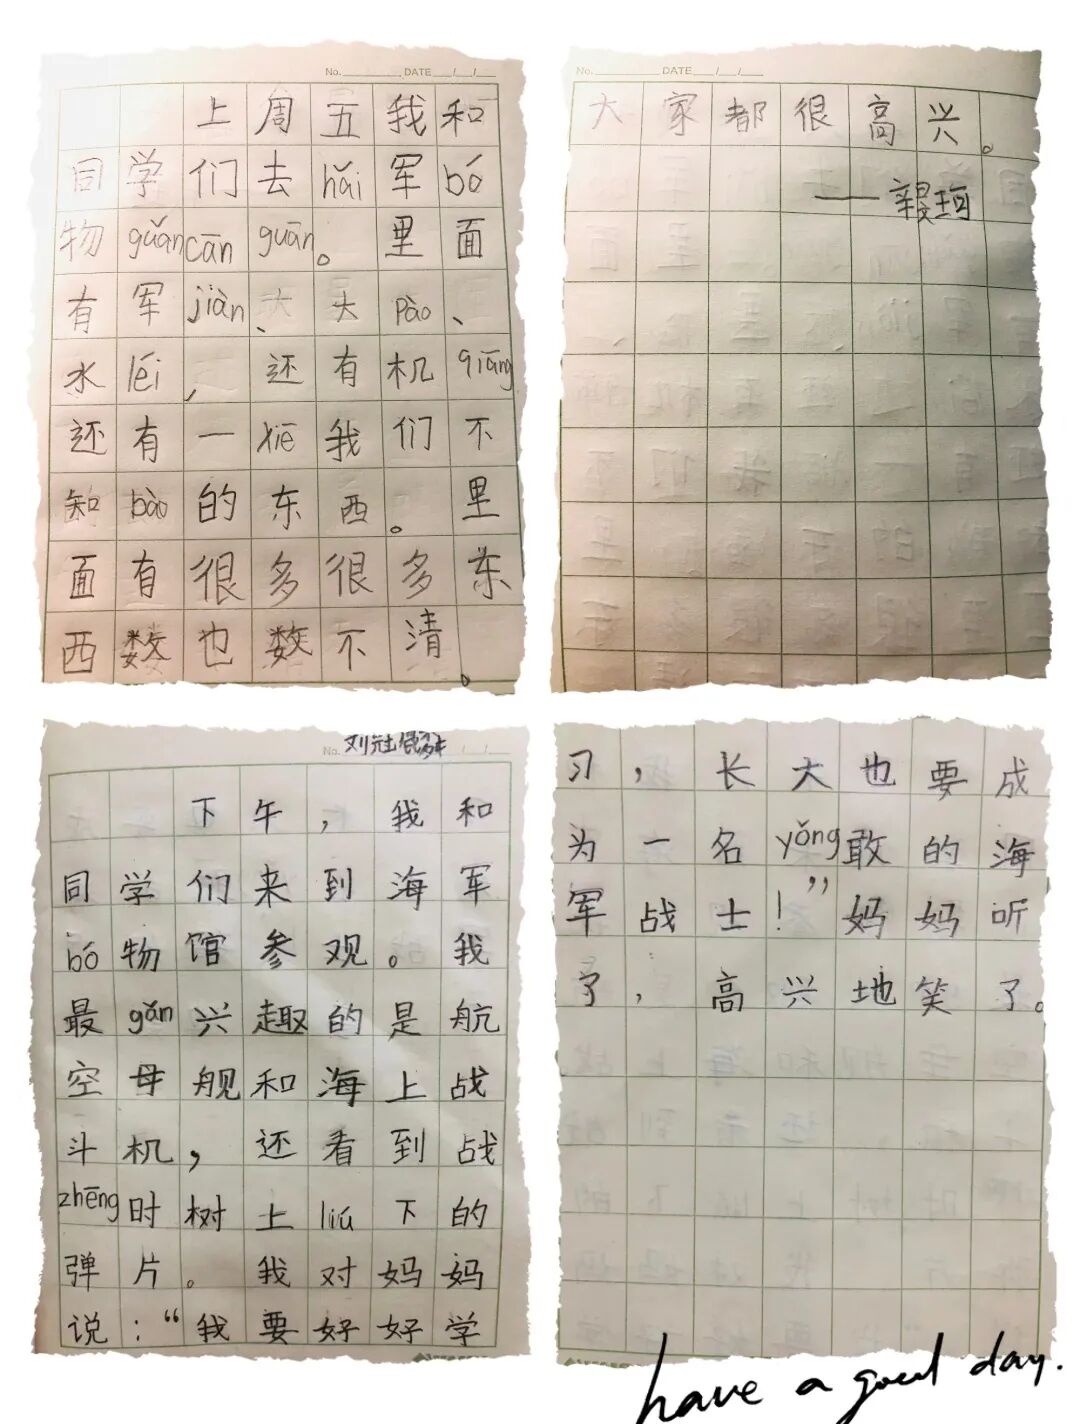 No. DATE / /
上周五我和
同学们去hǎi军bó
物guǎncānguān。里面
有军jiàn、大pào、
水léi,还有机qiāng
还有一xiē我们不
知dào的东西。里
面有很多很多东
西数也数不清。
No. DATE / /
大家都很高兴。
No. / /
下午,我和
同学们来到海军
bó物馆参观。我
最gǎn兴趣的是航
空母舰和海上战
斗机,还看到战
zhēng时树上liú下的
弹片。我对妈妈
说:“我要好好学
习,长大也要成
为一名yǒng敢的海
军战士!”妈妈听
了,高兴地笑了。
have a good day.